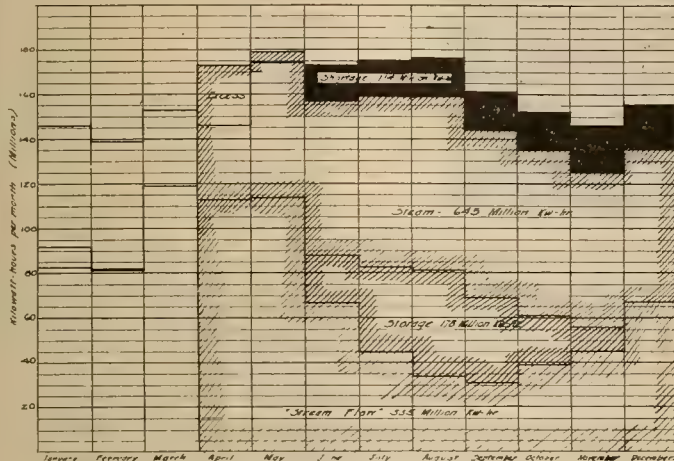 Kilowatt-hours per month (Millions)
180
160
140
120
100
80
60
40
20
Excess
Shortage 174
Steam - 645 Million Kw-hr.
Storage 178 Million Kw-hr
"Stream Flow" 535 Million Kw-hr
January February March April May June July August September October November December